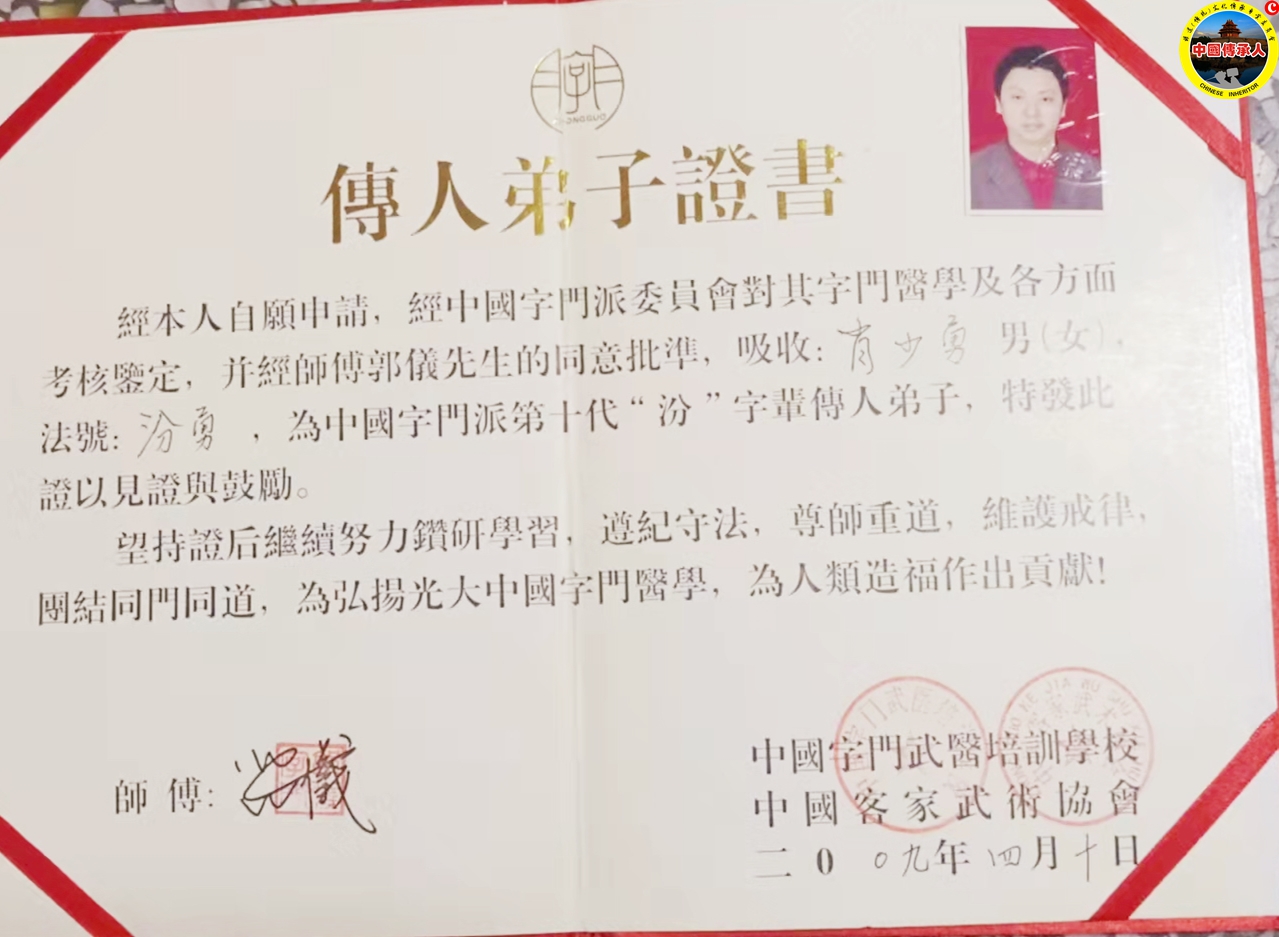 中國傳承人
CHINESE INHERITOR
ZHONGGUO
傳人弟子證書
經本人自願申請，經中國字門派委員會對其字門醫學及各方面
考核鑒定，并經師傅郭儀先生的同意批準，吸收：肖少勇 男（女），
法號：汾勇，為中國字門派第十代“汾”字輩傳人弟子，特發此
證以見證與鼓勵。
望持證后繼續努力鑽研學習，遵紀守法，尊師重道，維護戒律，
團結同門同道，為弘揚光大中國字門醫學，為人類造福作出貢獻！
師傅：
中國字門武醫培訓學校
中國客家武術協會
二0 0九年四月十日